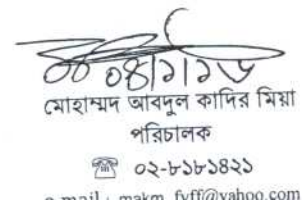 ০৪।১।১৮
মোহাম্মদ আবদুল কাদির মিয়া
পরিচালক
☎ ০২-৮১৮১৪২১
e.mail : makm_fyff@yahoo.com